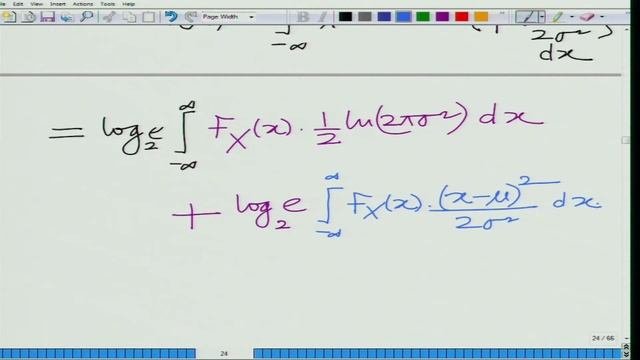 File Edit View Insert Actions Tools Help
Page Width
-∞ 2σ²
dx
= log₂e ∫_{-∞}^{∞} F_X(x) · 1/2 ln(2πσ²) dx
+ log₂e ∫_{-∞}^{∞} F_X(x) · (x-μ)²/2σ² dx.
24 / 66
24